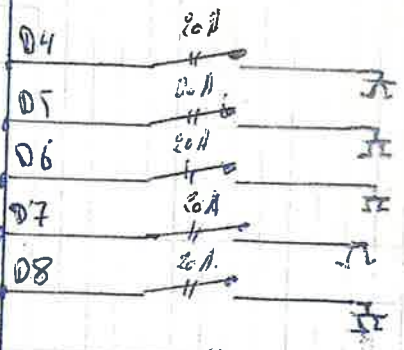 D4 20A
D5 20A
D6 20A
D7 20A
D8 20A.